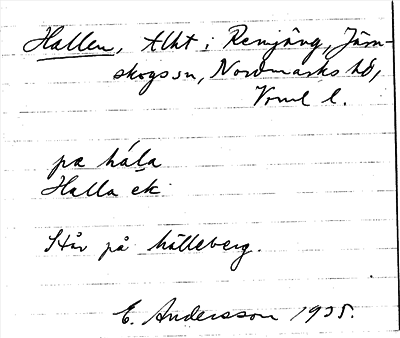 Hallen, tlht i Remjäng, Järn-
skogs sn, Nordmarks hd,
Vrml l.
pa hála
Halla ek
Står på hälleberg.
E. Andersson 1935.